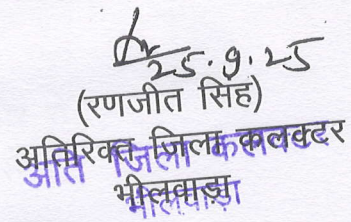 25.9.25
(रणजीत सिंह)
अतिरिक्त जिला कलक्टर
अति जिला कलक्टर
भीलवाड़ा
भीलवाड़ा